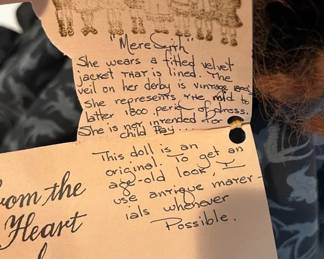 "Mere Syth"
She wears a fitted velvet
jacket that is lined. The
veil on her derby is vintage
She represents the mid to
later 1800 period of dress.
She is not intended for
child Play...
This doll is an
original. To get an
age-old look, I
use antique mater-
ials whenever
Possible.
from the
Heart